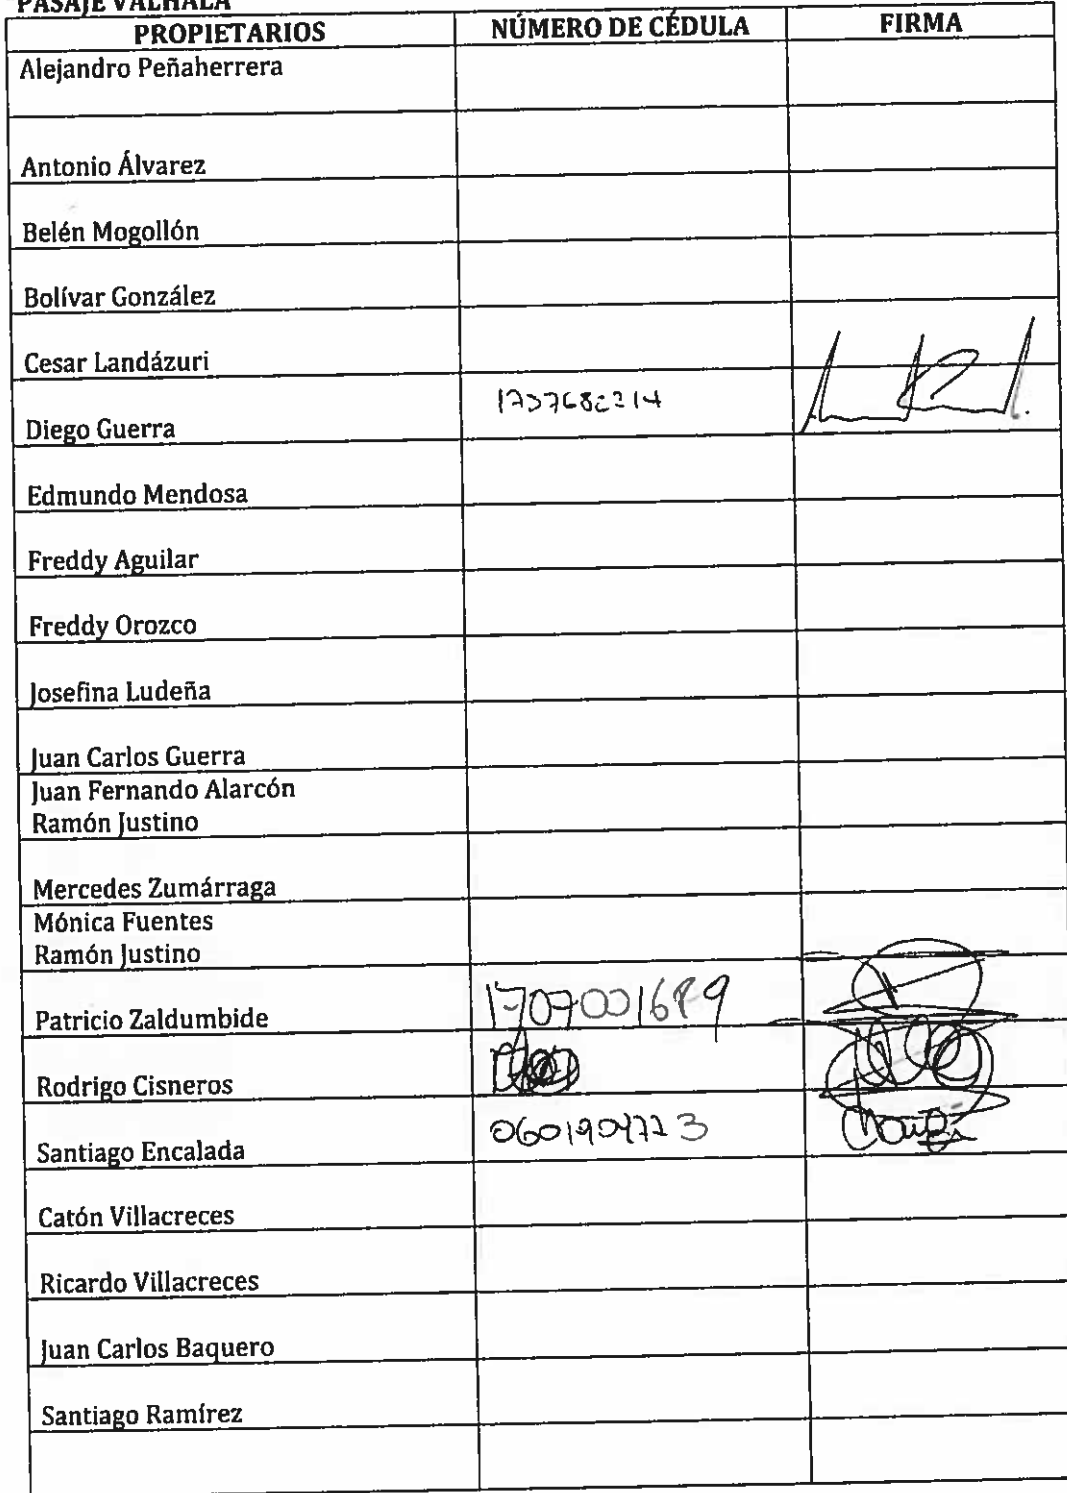 PASAJE VALHALA
PROPIETARIOS NÚMERO DE CÉDULA FIRMA
Alejandro Peñaherrera
Antonio Álvarez
Belén Mogollón
Bolívar González
Cesar Landázuri
Diego Guerra
Edmundo Mendosa
Freddy Aguilar
Freddy Orozco
Josefina Ludeña
Juan Carlos Guerra
Juan Fernando Alarcón
Ramón Justino
Mercedes Zumárraga
Mónica Fuentes
Ramón Justino
Patricio Zaldumbide
Rodrigo Cisneros
Santiago Encalada
Catón Villacreces
Ricardo Villacreces
Juan Carlos Baquero
Santiago Ramírez